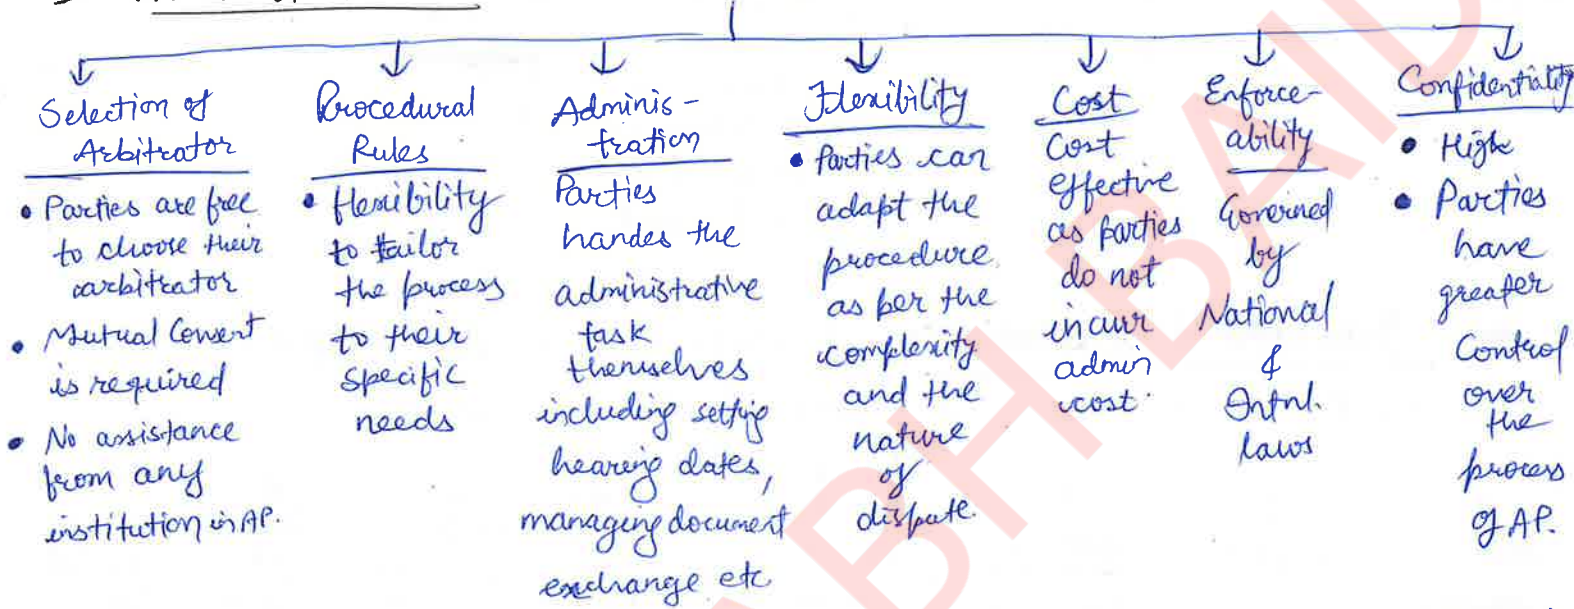 Selection of
Arbitrator
• Parties are free
to choose their
arbitrator
• Mutual Consent
is required
• No assistance
from any
institution in AP.
Procedural
Rules
• flexibility
to tailor
the process
to their
specific
needs
Adminis-
tration
Parties
handes the
administrative
task
themselves
including setting
hearing dates,
managing document
exchange etc
Flexibility
• Parties can
adapt the
procedure
as per the
complexity
and the
nature
of
dispute.
Cost
Cost
effective
as parties
do not
incur
admin
cost.
Enforce-
ability
Governed
by
National
&
Intnl.
laws
Confidentiality
• High
• Parties
have
greater
Control
over
the
process
of AP.
BH BAID